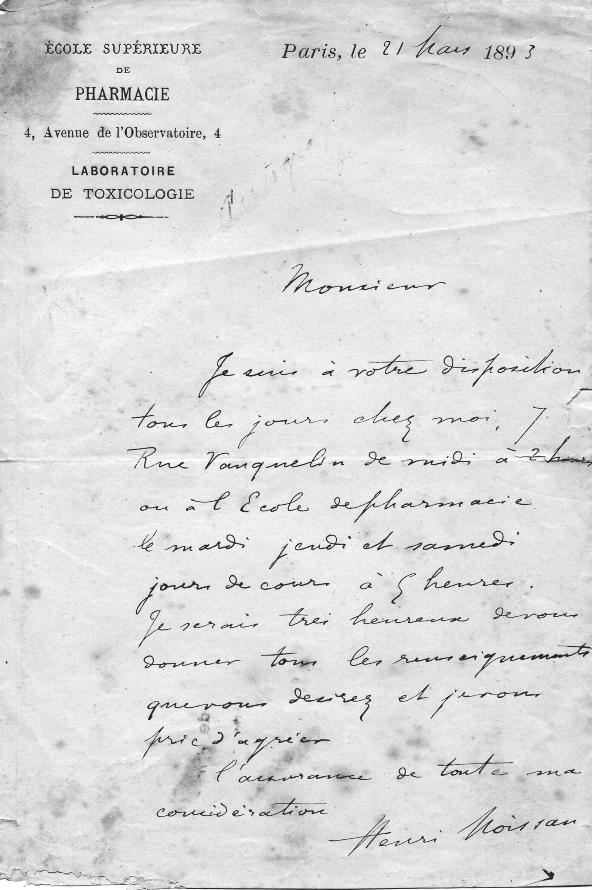 ÉCOLE SUPÉRIEURE
DE
PHARMACIE
4, Avenue de l'Observatoire, 4
LABORATOIRE
DE TOXICOLOGIE
Paris, le 21 Mars 1893
Monsieur
Je suis à votre disposition
tous les jours chez moi, 7
Rue Vauquelin de midi à 2 heures
ou à l Ecole de pharmacie
le mardi jeudi et samedi
jours de cours à 5 heures.
Je serais tres heureux de vous
donner tous les renseignements
que vous desirez et je vous
prie d'agréer
l'assurance de toute ma
considération
Henri Moissan